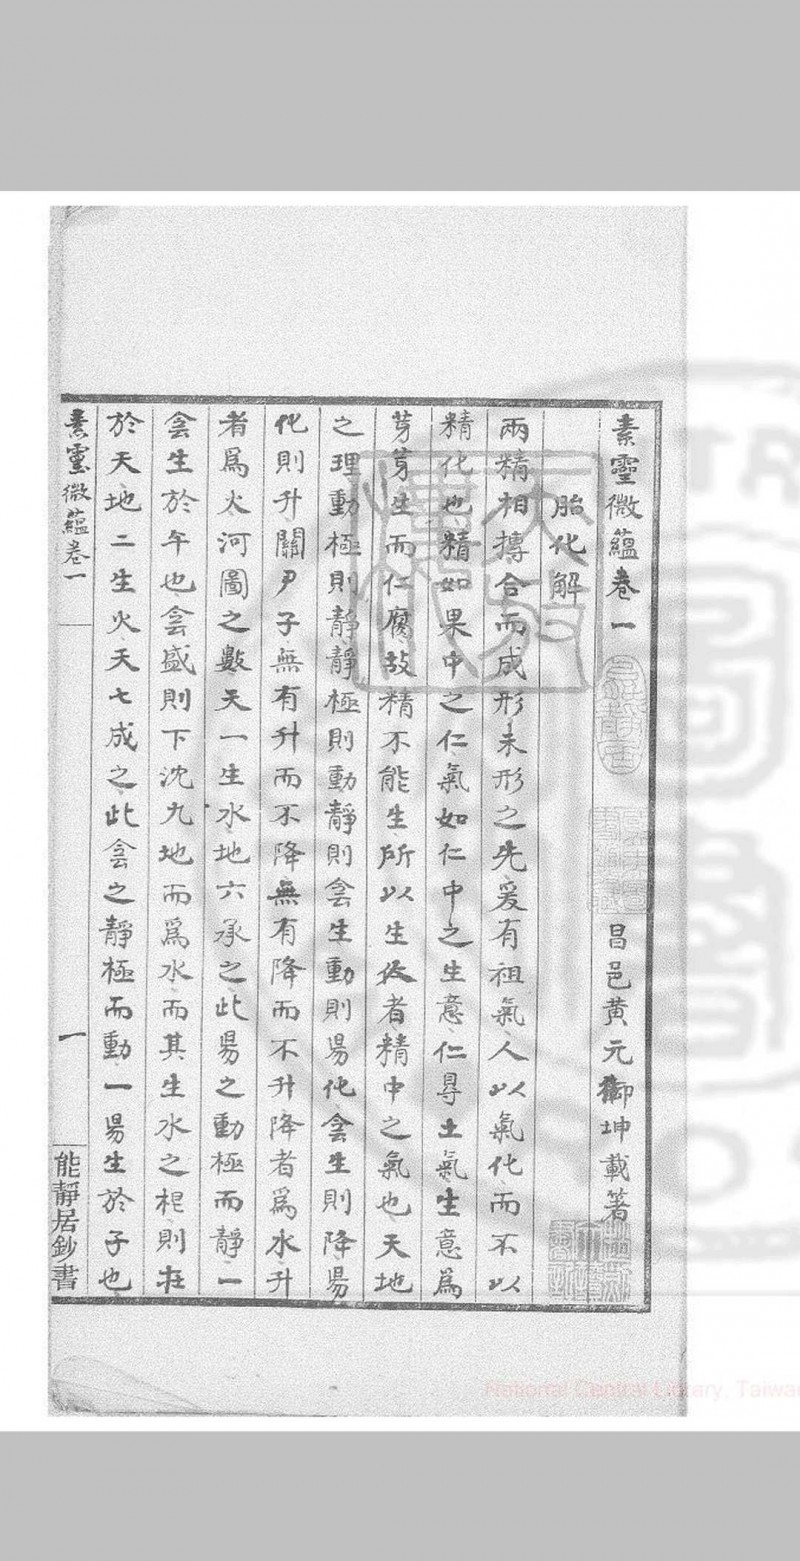 素靈微蘊卷一
昌邑黃元御坤載著
胎化解
兩精相摶合而成形未形之先爰有祖氣人以氣化而不以
精化也精如果中之仁氣如仁中之生意仁得土氣生意爲
芽芽生而仁腐故精不能生所以生人者精中之氣也天地
之理動極則靜靜極則動靜則侌生動則昜化侌生則降昜
化則升關尹子無有升而不降無有降而不升降者爲水升
者爲火河圖之數天一生水地六承之此昜之動極而靜一
侌生於午也侌盛則下沈九地而爲水而其生水之根則在
於天地二生火天七成之此侌之靜極而動一昜生於子也
素靈微蘊卷一
一
能靜居鈔書
National Central Library, Taiwan